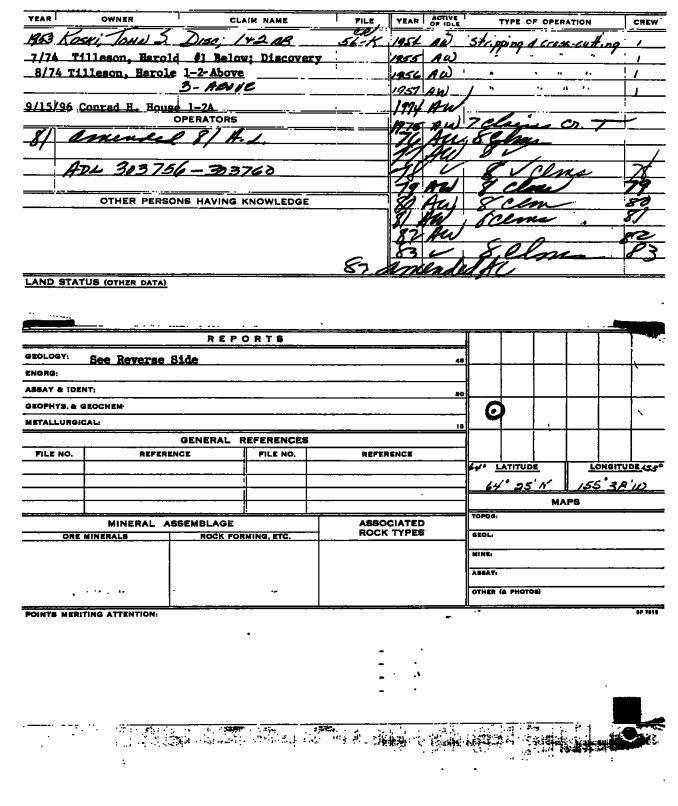 YEAR OWNER CLAIM NAME FILE YEAR ACTIVE OF IDLE TYPE OF OPERATION CREW
1953 Koski, John S. Disc, 1+2 AB 56-K 1954 AW Stripping & cross-cutting 1
7/74 Tilleson, Harold #1 Below; Discovery 1955 AW " " " 1
8/74 Tilleson, Harole 1-2-Above 1956 AW " " " 1
3- ABOVE 1957 AW " " " 1
9/15/96 Conrad H. House 1-2A 1974 AW
OPERATORS 1975 AW 7 Claims Cr. T
81 amended 81 A.L. 76 AW 8 Clms
77 AW 8 ✓
ADL 303756-303760 78 ✓ 8 ✓ Clms 78
79 AW 8 clms 79
OTHER PERSONS HAVING KNOWLEDGE 80 AW 8 Clm 80
81 AW Clms 81
82 AW 82
83 ✓ 8 Clms 83
amended AL
LAND STATUS (OTHER DATA)
REPORTS
GEOLOGY: See Reverse Side 45
ENGRG:
ASSAY & IDENT: 30
GEOPHYS. & GEOCHEM:
METALLURGICAL: 15
GENERAL REFERENCES
FILE NO. REFERENCE FILE NO. REFERENCE
64° LATITUDE LONGITUDE 155°
64° 25' N 155° 38' W
MAPS
MINERAL ASSEMBLAGE ASSOCIATED ROCK TYPES TOPOG:
ORE MINERALS ROCK FORMING, ETC. GEOL:
MINE:
ASSAY:
OTHER (& PHOTOS)
POINTS MERITING ATTENTION: